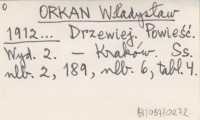 O
ORKAN Władysław
1912... Drzewiej. Powieść.
Wyd. 2. — Kraków. Ss.
nlb. 2, 189, nlb. 6, tabl. 4.
BJ/087/0272